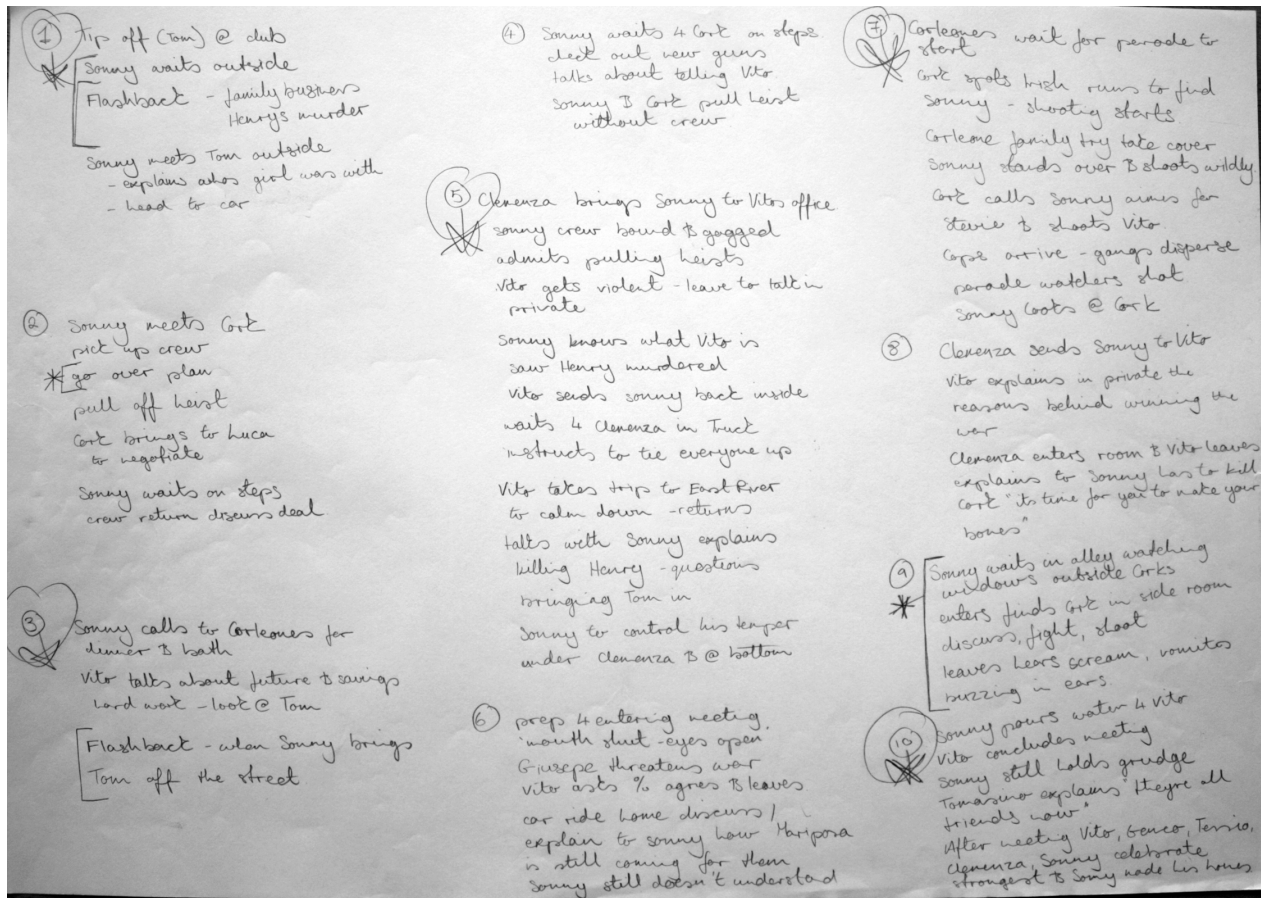 1 Tip off (Tom) @ club
Sonny waits outside
Flashback - family business
Henrys murder
Sonny meets Tom outside
- explains whos girl was with
- head to car
2 Sonny meets Cork
pick up crew
go over plan
pull off heist
Cork brings to Luca
to negotiate
Sonny waits on steps
crew return discuss deal
3 Sonny calls to Corleones for
dinner & bath
Vito talks about future & savings
hard work - look @ Tom
Flashback - when Sonny brings
Tom off the street
4 Sonny waits 4 Cork on steps
check out new guns
talks about telling Vito
Sonny & Cork pull heist
without crew
5 Clemenza brings Sonny to Vitos office
sonny crew bound & gagged
admits pulling heists
Vito gets violent - leave to talk in
private
Sonny knows what Vito is
saw Henry murdered
Vito sends sonny back inside
waits 4 Clemenza in Truck
instructs to tie everyone up
Vito takes trip to East River
to calm down - returns
talks with Sonny explains
killing Henry - questions
bringing Tom in
Sonny to control his temper
under Clemenza & @ bottom
6 prep 4 entering meeting
mouth shut - eyes open
Giusepe threatens war
Vito asks % agrees & leaves
car ride home discuss /
explain to sonny how Mariposa
is still coming for them
Sonny still doesn't understand
7 Corleones wait for parade to
start
Cork spots Irish runs to find
Sonny - shooting starts
Corleone family try take cover
Sonny stands over & shoots wildly
Cork calls Sonny aimes for
Stevie & shoots Vito
Cops arrive - gangs disperse
parade watchers shot
Sonny looks @ Cork
8 Clemenza sends Sonny to Vito
Vito explains in private the
reasons behind winning the
war
Clemenza enters room & Vito leaves
explains to Sonny has to kill
Cork "its time for you to make your
bones"
9 Sonny waits in alley watching
windows outside Corks
enters finds Cork in side room
discuss, fight, shoot
leaves hears scream, vomits
buzzing in ears.
10 Sonny pours water 4 Vito
Vito concludes meeting
Sonny still holds grudge
Tomasino explains "theyre all
friends now"
After meeting Vito, Genco, Tessio,
Clemenza, Sonny celebrate
strongest & Sonny made his bones